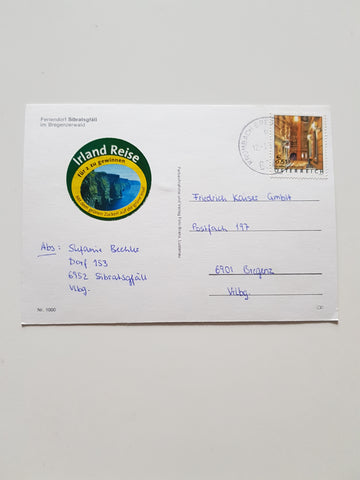 Feriendorf Sibratsgfäll
im Bregenzerwald
Irland Reise
für 2 zu gewinnen
Abs: Stefanie Bechter
Dorf 153
6952 Sibratsgfäll
Vlbg.
Nr. 1000
KRUMBACH
0,51
ÖSTERREICH
Friedrich Kaiser GmbH
Postfach 197
6901 Bregenz
Vlbg.